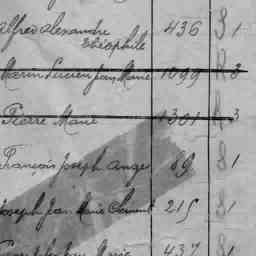 Alfred Alexandre 436 S 1
Théophile
Marin Lucien Jean Marie 1099 R 3
Pierre Marie 1301 R 3
François Joseph Ange 69 S 1
Joseph Jean Marie Clément 215 S 1
Jean Marie 437 S 1